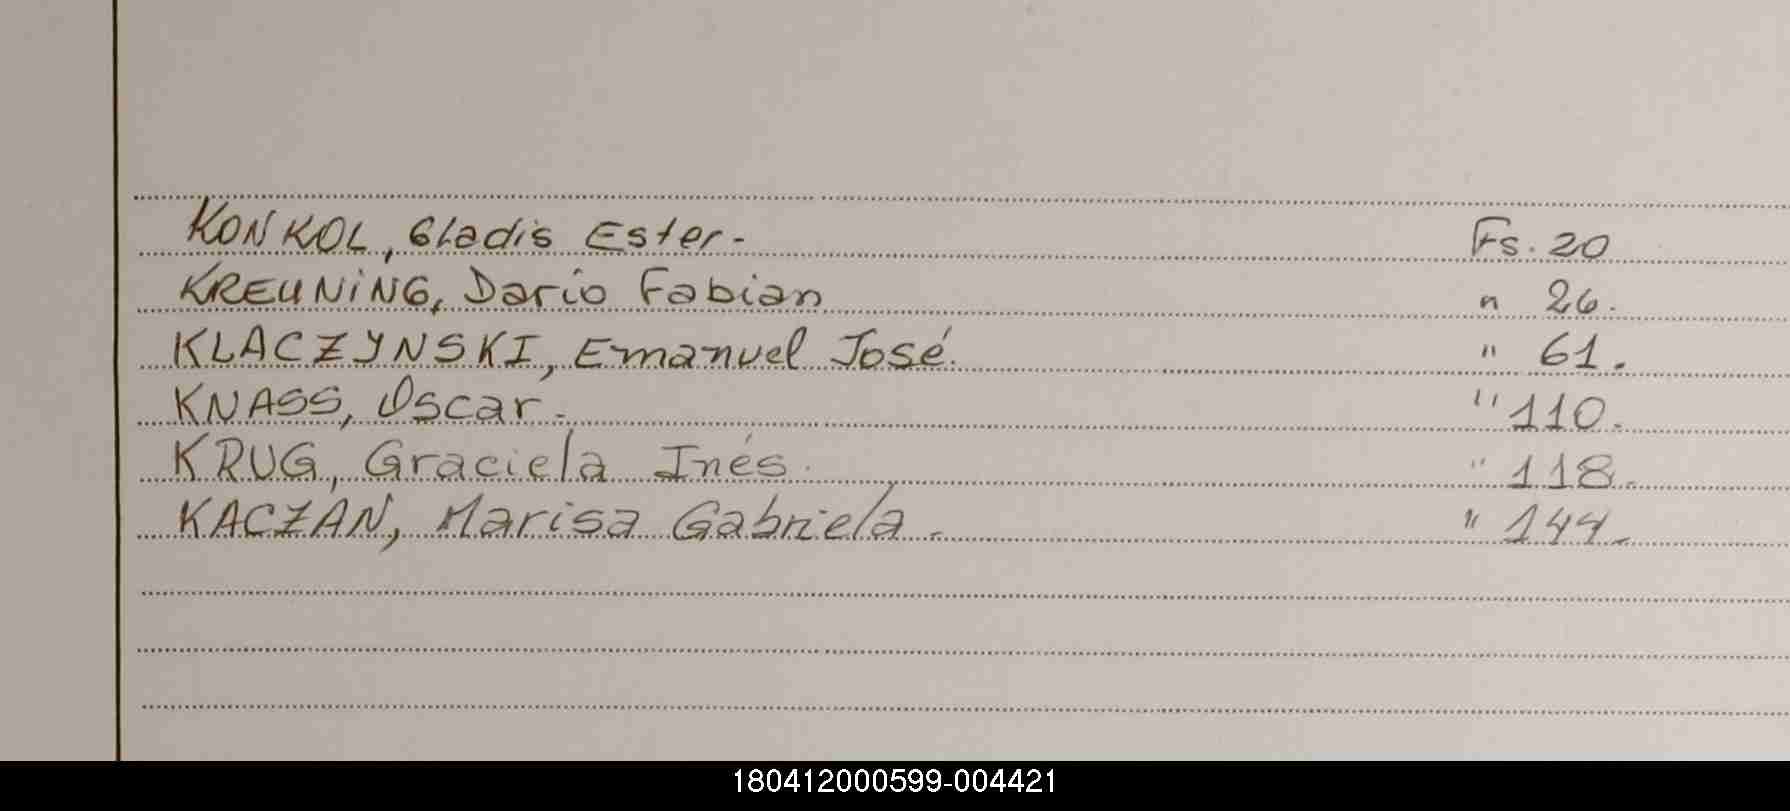 KONKOL, Gladis Ester- Fs. 20
KREUNING, Dario Fabian " 26.
KLACZYNSKI, Emanuel José. " 61.
KNASS, Oscar- " 110.
KRUG, Graciela Inés. " 118.
KACZAN, Marisa Gabriela. " 144.
180412000599-004421